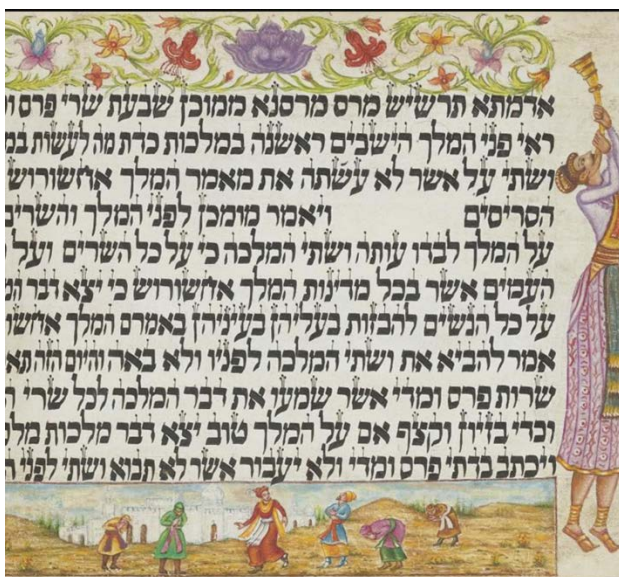 אדמתא תרשיש מרס מרסנא ממוכן שבעת שרי פרס
ראי פני המלך הישבים ראשנה במלכות כדת מה לעשות
ושתי על אשר לא עשתה את מאמר המלך אחשורוש
הסריסים ויאמר מומכן לפני המלך והשרים
על המלך לבדו עותה ושתי המלכה כי על כל השרים ועל
העמים אשר בכל מדינות המלך אחשורוש כי יצא דבר
על כל הנשים להבזות בעליהן בעיניהן באמרם המלך
אמר להביא את ושתי המלכה לפניו ולא באה והיום הזה
שרות פרס ומדי אשר שמעו את דבר המלכה לכל שרי
וכדי בזיון וקצף אם על המלך טוב יצא דבר מלכות
ויכתב בדתי פרס ומדי ולא יעבור אשר לא תבוא ושתי לפני